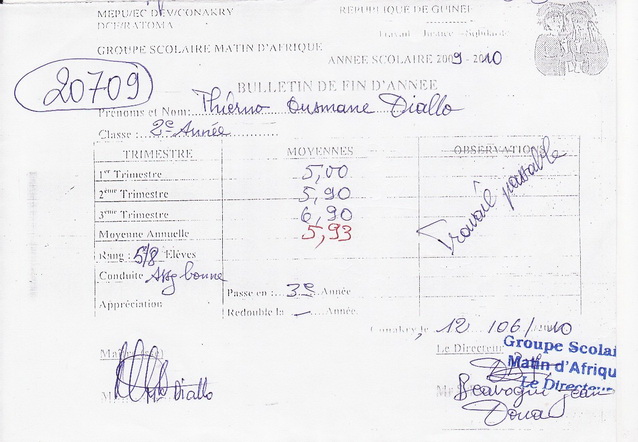 MEPU/EC DEV/CONAKRY
REPUBLIQUE DE GUINEE
DCE/RATOMA
Travail - Justice - Solidarité
GROUPE SCOLAIRE MATIN D'AFRIQUE
ANNEE SCOLAIRE 2009 - 2010
20709
BULLETIN DE FIN D'ANNEE
Prénoms et Nom: Thierno Ousmane Diallo
Classe : 2e Année
TRIMESTRE MOYENNES OBSERVATIONS
1er Trimestre 5,00
2ème Trimestre 5,90
3ème Trimestre 6,90
Moyenne Annuelle 5,93
Travail passable
Rang : 5/8 Elèves
Conduite Assez bonne
Passe en : 3e Année
Appréciation
Redouble la - Année
Conakry, 12 /06/ 2010
Le Directeur
Groupe Scolai
Matin d'Afriqu
Le Directeur
Diallo
Beavogui Jean